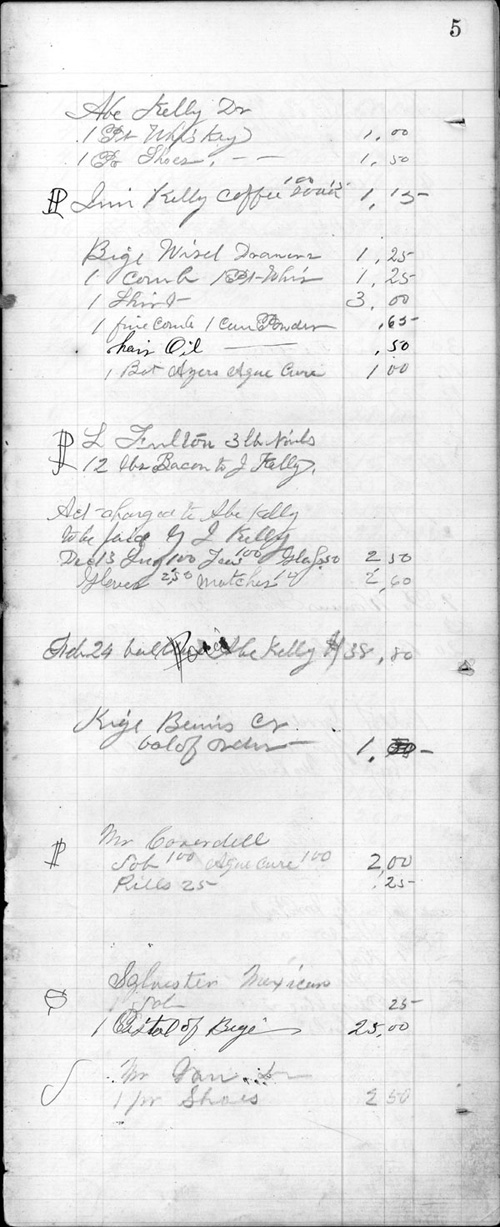 5
Abe Kelly Dr
1 Pt Whiskey 1,00
1 Pr Shoes, — — 1,50
P Jim Kelly Coffee 100 1,15
Bige Wisel Drawers 1,25
1 Comb 1 Pt Whis 1,25
1 Shirt 3,00
1 fine Comb 1 Can Powder ,65
hair Oil — ,50
1 Bot Ayers Ague Cure 1 00
P L Fulton 3 lb Nails
12 lbs Bacon to J Kelly,
Act charged to Abe Kelly
to be paid by J Kelly
Dec 13 100 100 Glass 50 2,50
Gloves 2,50 Matches 10 2,60
Feb 24 Abe Kelly $38,80
Bemis Cr
bal of order — 1,
P Mr Coverdell
100 Ague Cure 100 2,00
Pills 25 ,25
Sylvester Mexican
1 25
1 Pistol of Bige 25,00
Mr
1 pr Shoes 2 50